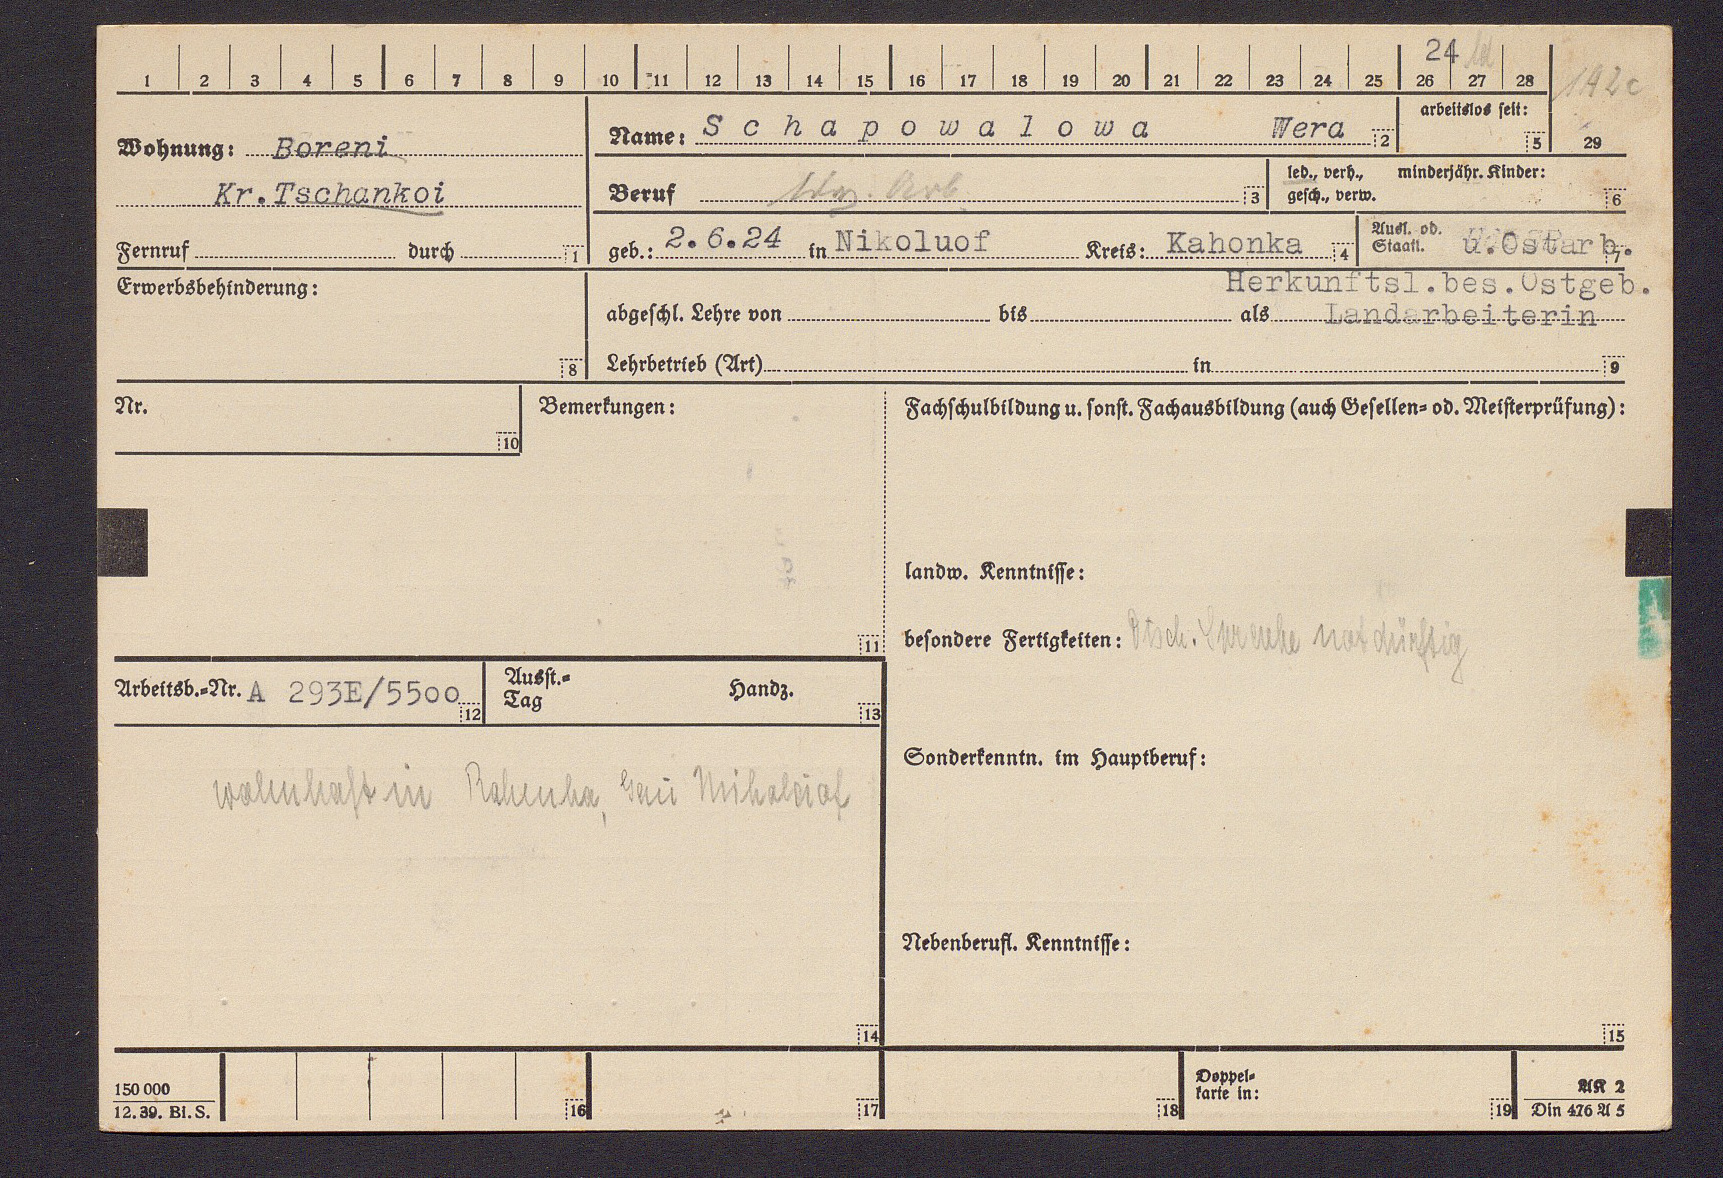 24 led
1 2 3 4 5 6 7 8 9 10 11 12 13 14 15 16 17 18 19 20 21 22 23 24 25 26 27 28
Wohnung: Boreni
Kr. Tschankoi
Fernruf durch 1
Name: Schapowalowa Wera 2
arbeitslos seit: 5
29
Beruf Arb. 3
led., verh., gesch., verw.
minderjähr. Kinder: 6
geb.: 2.6.24 in Nikoluof Kreis: Kahonka 4
Ausl. od. Staatl. u.Ostarb. 7
Herkunftsl.bes.Ostgeb.
Erwerbsbehinderung: 8
abgeschl. Lehre von bis als Landarbeiterin
Lehrbetrieb (Art) in 9
Nr. 10
Bemerkungen: 11
Fachschulbildung u. sonst. Fachausbildung (auch Gesellen= od. Meisterprüfung):
landw. Kenntnisse:
besondere Fertigkeiten: Dtsch. Sprache notdürftig
Arbeitsb.=Nr. A 293E/5500 12
Ausst.=
Tag
Handz. 13
wohnhaft in
Sonderkenntn. im Hauptberuf:
Nebenberufl. Kenntnisse:
14
15
150 000
12. 39. Bl. S.
16
17
18
Doppel=
karte in: 19
AK 2
Din 476 A 5